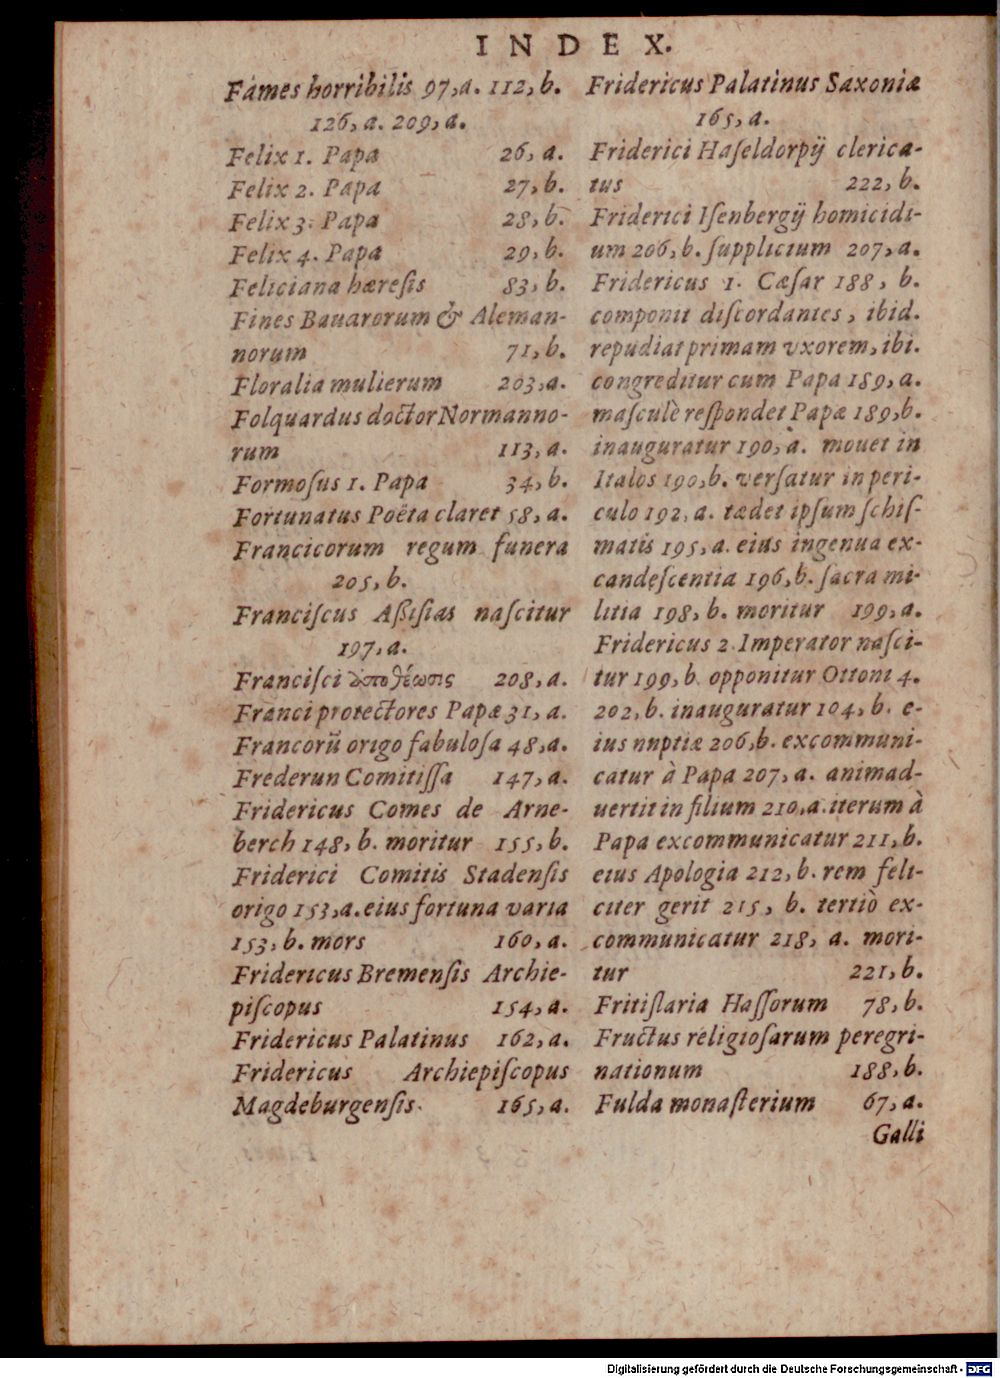 INDEX.
Fames horribilis 97,a. 112,b.
126,a. 209,a.
Felix 1. Papa 26,a.
Felix 2. Papa 27,b.
Felix 3. Papa 28,b.
Felix 4. Papa 29,b.
Feliciana hæreſis 83,b.
Fines Bauarorum & Aleman-
norum 71,b.
Floralia mulierum 203,a.
Folquardus doctor Normanno-
rum 113,a.
Formoſus 1. Papa 34,b.
Fortunatus Poëta claret 58,a.
Francicorum regum funera
205,b.
Franciſcus Aßiſias naſcitur
197,a.
Franciſci ἀποθέωσις 208,a.
Franci protectores Papæ 31,a.
Francorũ origo fabuloſa 48,a.
Frederun Comitiſſa 147,a.
Fridericus Comes de Arne-
berch 148,b. moritur 155,b.
Friderici Comitis Stadenſis
origo 153,a. eius fortuna varia
153,b. mors 160,a.
Fridericus Bremenſis Archie-
piſcopus 154,a.
Fridericus Palatinus 162,a.
Fridericus Archiepiſcopus
Magdeburgenſis. 165,a.
Fridericus Palatinus Saxoniæ
165,a.
Friderici Haſeldorpij clerica-
tus 222,b.
Friderici Iſenbergij homicidi-
um 206,b. ſupplicium 207,a.
Fridericus 1. Cæſar 188, b.
componit diſcordantes, ibid.
repudiat primam vxorem, ibi.
congreditur cum Papa 189,a.
maſculè reſpondet Papæ 189,b.
inauguratur 190,a. mouet in
Italos 190,b. verſatur in peri-
culo 192,a. tædet ipſum ſchiſ-
matis 195,a. eius ingenua ex-
candeſcentia 196,b. ſacra mi-
litia 198,b. moritur 199,a.
Fridericus 2. Imperator naſci-
tur 199,b. opponitur Ottoni 4.
202,b. inauguratur 104,b. e-
ius nnptiæ 206,b. excommuni-
catur à Papa 207,a. animad-
uertit in filium 210,a. iterum à
Papa excommunicatur 211,b.
eius Apologia 212,b. rem feli-
citer gerit 215, b. tertiò ex-
communicatur 218, a. mori-
tur 221,b.
Fritiſlaria Haſſorum 78,b.
Fructus religioſarum peregri-
nationum 188,b.
Fulda monaſterium 67,a.
Galli
Digitalisierung gefördert durch die Deutsche Forschungsgemeinschaft - DFG